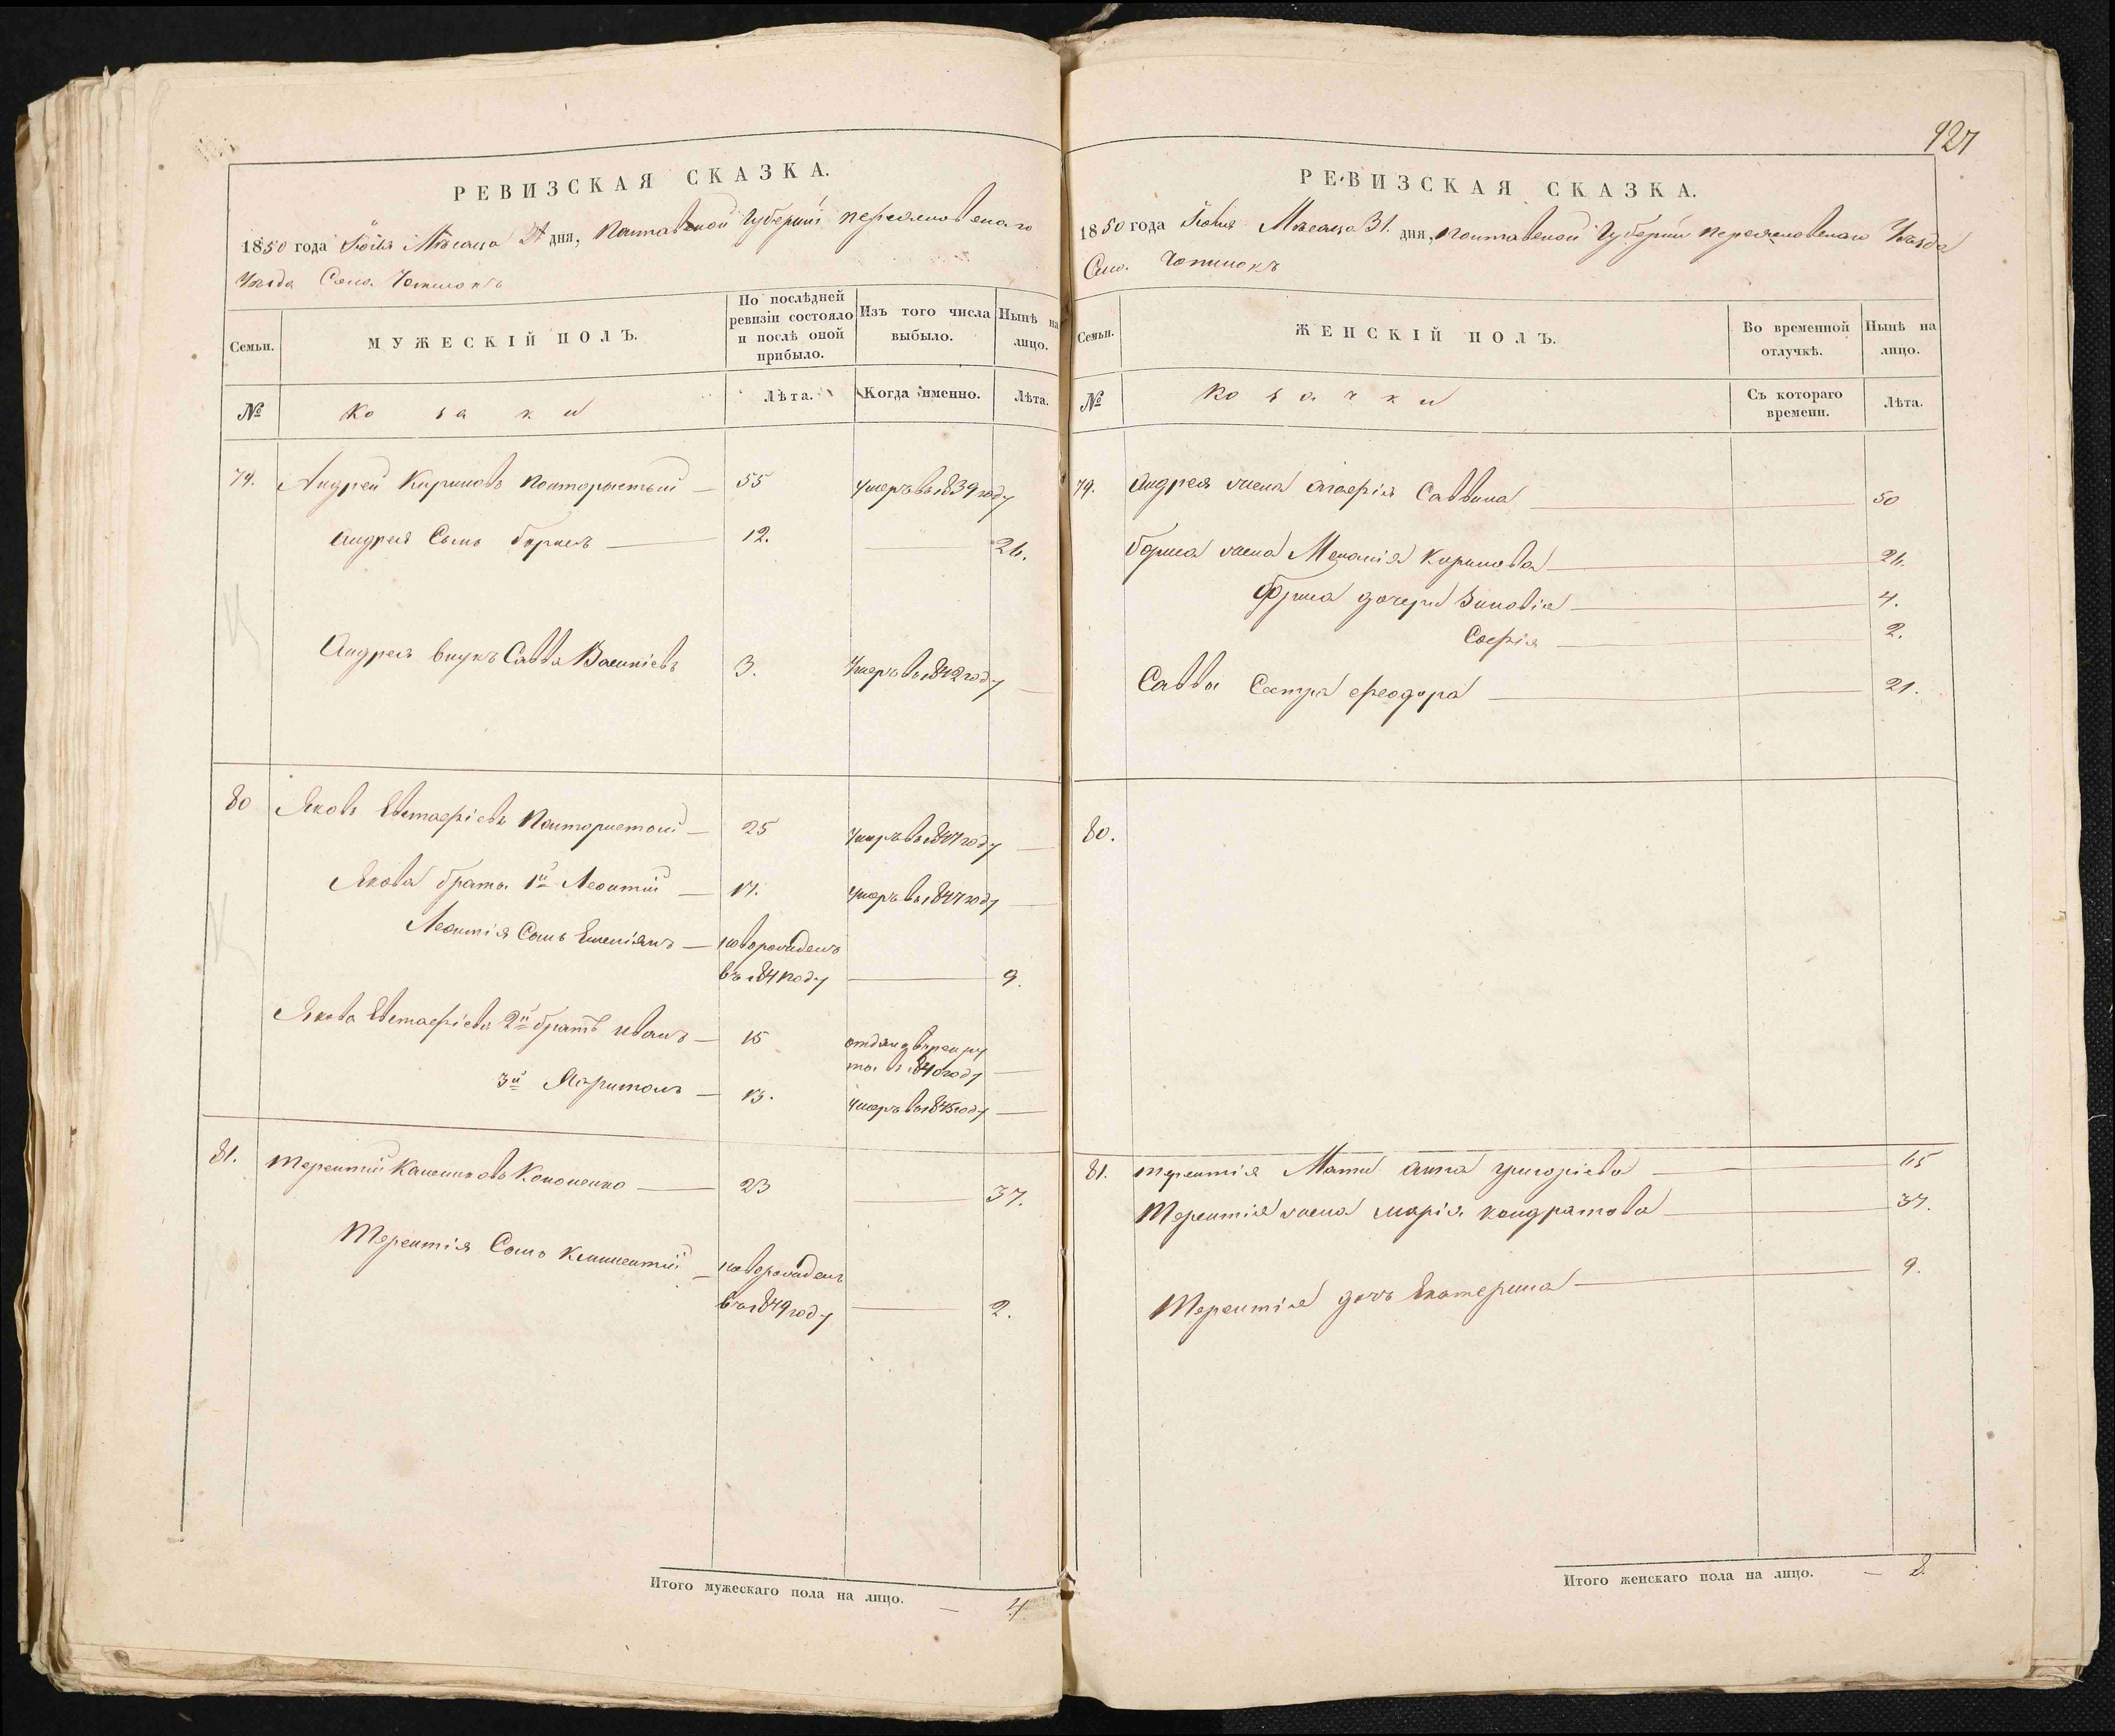 927
РЕВИЗСКАЯ СКАЗКА.
1850 года Іюля Мѣсяца 31 дня, Полтавской Губерніи Переяславскаго
Уѣзда Села
Семьи.
МУЖЕСКІЙ ПОЛЪ.
По послѣдней ревизіи состояло и послѣ оной прибыло.
Изъ того числа выбыло.
Нынѣ на лицо.
№
козаки
Лѣта.
Когда именно.
Лѣта.
79. Андрей Кириловъ — 55 умеръ въ 1839 году
Андрея Сынъ Борисъ — 12. — 26.
Андрея внукъ Савва Васильевъ 3. Умеръ въ 1842 году —
80 Яковъ Евстафіевъ — 25 умеръ въ 1847 году —
Якова братъ 1й Леонтій — 17. умеръ въ 1847 году —
Леонтія Сынъ Емеліянъ — новорожденъ
въ 1841 году — 9.
Якова Евстафіева 2й братъ Иванъ — 15 отданъ въ рекру
ты въ 1840 году —
3й Харитонъ — 13. умеръ въ 1845 году —
81. Терентій Калениковъ Кононенко — 23 — 37.
Терентія Сынъ Климентій — новорожденъ
въ 1849 году — 2.
Итого мужескаго пола на лицо. — 4.
РЕВИЗСКАЯ СКАЗКА.
1850 года Іюля Мѣсяца 31. дня, Полтавской Губерніи Переяславскаго Уѣзда
Села
Семьи.
ЖЕНСКІЙ ПОЛЪ.
Во временной отлучкѣ.
Нынѣ на лицо.
№
козачки
Съ котораго времени.
Лѣта.
79. Андрея жена Агафія Саввина — 50
Бориса жена Меланія Кирилова — 26.
Бориса дочери Зиновія — 4.
Софія — 2.
Саввы Сестра Феодора — 21.
80.
81. Терентія Мати Анна Григоріева — 65
Терентія жена Марія Кондратова — 37.
Терентія дочь Екатерина — 9.
Итого женскаго пола на лицо. — 8.